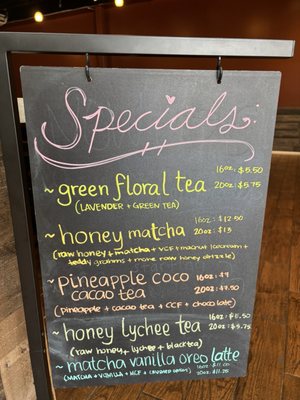 Specials:
~ green floral tea
16oz: $5.50
20oz: $5.75
(LAVENDER + GREEN TEA)
~ honey matcha
16oz: $12.50
20oz: $13
(raw honey + matcha + VCF + walnut icecream +
teddy grahams + more raw honey drizzle)
~ pineapple coco
cacao tea
16oz: $7
20oz: $7.50
(pineapple + cacao tea + CCF + chocolate)
~ honey lychee tea
(raw honey + lychee + black tea)
~ matcha vanilla oreo latte
(MATCHA + VANILLA +
16oz: $11.00
20oz: